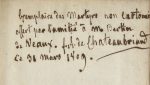 Exemplaire des Martyrs non cartonné
offert par l'amitié à M. Bertin
de Veaux. f. de Chateaubriand
Ce 31 mars 1809.